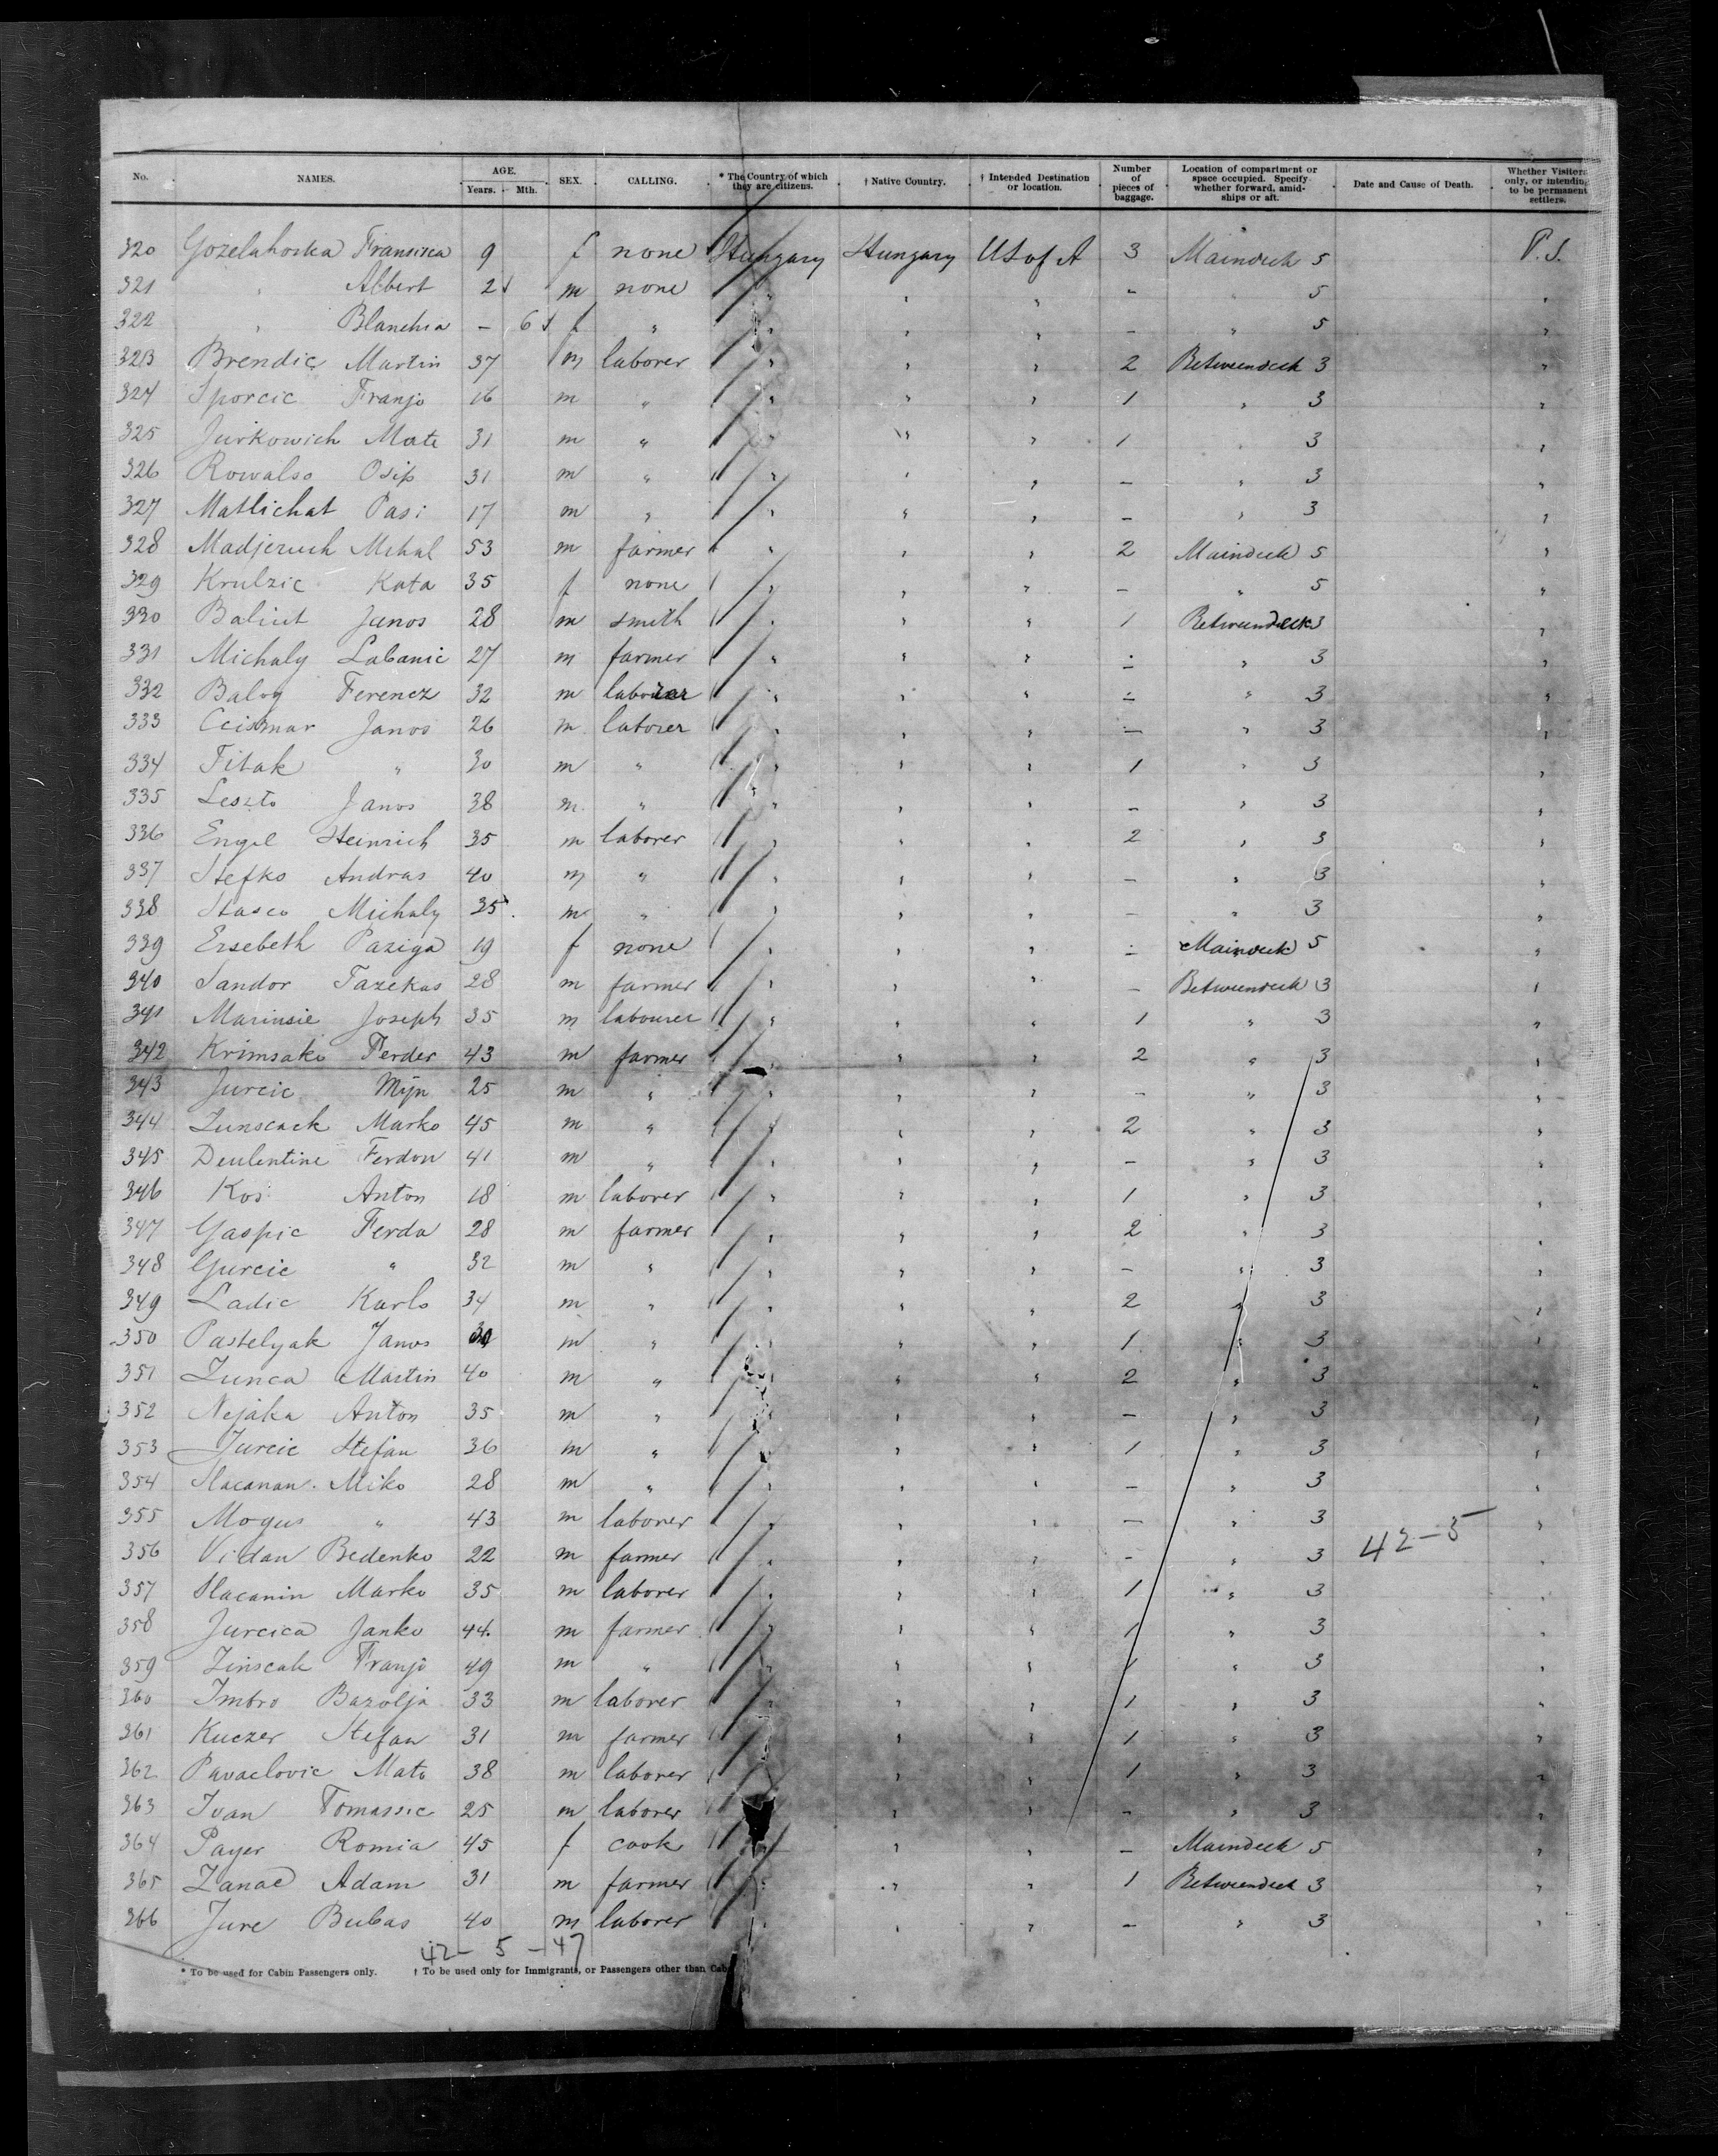 No. NAMES. AGE. Years. Mth. SEX. CALLING. * The Country of which they are citizens. † Native Country. † Intended Destination or location. Number of pieces of baggage. Location of compartment or space occupied. Specify whether forward, amidships or aft. Date and Cause of Death. Whether Visitors only, or intending to be permanent settlers.
320 Gozelahoska Fransisca 9 f none Hungary Hungary US of A 3 Maindeck 5 P.S.
321 " Albert 2 m none " " " - " 5 "
322 " Blanchia - 6 f " " " " - " 5 "
323 Brendic Martin 37 m laborer " " " 2 Betweendeck 3 "
324 Sporcic Franjo 16 m " " " " 1 " 3 "
325 Jurkowich Mate 31 m " " " " 1 " 3 "
326 Rowalso Osip 31 m " " " " - " 3 "
327 Matlichat Pasi 17 m " " " " - " 3 "
328 Madjeruch Mihal 53 m farmer " " " 2 Maindeck 5 "
329 Krulzic Kata 35 f none " " " - " 5 "
330 Balint Janos 28 m smith " " " 1 Betweendeck 3 "
331 Michaly Labanic 27 m farmer " " " - " 3 "
332 Balog Ferencz 32 m laborer " " " - " 3 "
333 Janos 26 m laborer " " " - " 3 "
334 Titak " 30 m " " " " 1 " 3 "
335 Leszto Janos 38 m " " " " - " 3 "
336 Engel Heinrich 35 m laborer " " " 2 " 3 "
337 Stefko Andras 40 m " " " " - " 3 "
338 Stasco Michaly 25 m " " " " - " 3 "
339 Ersebeth Paziga 19 f none " " " - Maindeck 5 "
340 Sandor Fazekas 28 m farmer " " " - Betweendeck 3 "
341 Marinsie Joseph 35 m labourer " " " 1 " 3 "
342 Krimsaki Ferder 43 m farmer " " " 2 " 3 "
343 Jurcic Mijn 25 m " " " " - " 3 "
344 Zunscack Marko 45 m " " " " 2 " 3 "
345 Deulentine Ferdon 41 m " " " " - " 3 "
346 Kos Anton 18 m laborer " " " 1 " 3 "
347 Gaspic Ferda 28 m farmer " " " 2 " 3 "
348 Gurcic " 32 m " " " " - " 3 "
349 Ladic Karlo 34 m " " " " 2 " 3 "
350 Pastelyak Janos m " " " " 1 " 3 "
351 Zunca Martin 40 m " " " " 2 " 3 "
352 Nejaka Anton 35 m " " " " - " 3 "
353 Jurcic Stefan 36 m " " " " 1 " 3 "
354 Slacanan Miko 28 m " " " " - " 3 "
355 Mogus " 43 m laborer " " " - " 3 "
356 Vidan Bedenko 22 m farmer " " " - " 3 42-5 "
357 Slacanin Marko 35 m laborer " " " 1 " 3 "
358 Jurcica Janko 44 m farmer " " " 1 " 3 "
359 Zinscak Franjo 49 m " " " " 1 " 3 "
360 Imbro Bazolja 33 m laborer " " " 1 " 3 "
361 Kuczer Stefan 31 m farmer " " " 1 " 3 "
362 Pavaclovic Mato 38 m laborer " " " 1 " 3 "
363 Ivan Tomassic 25 m laborer " " " - " 3 "
364 Payer Romia 45 f cook " " " - Maindeck 5 "
365 Zanac Adam 31 m farmer " " " 1 Betweendeck 3 "
366 Jure Bubas 40 m laborer " " " - " 3 "
42 - 5 - 47
* To be used for Cabin Passengers only. † To be used only for Immigrants, or Passengers other than Cab